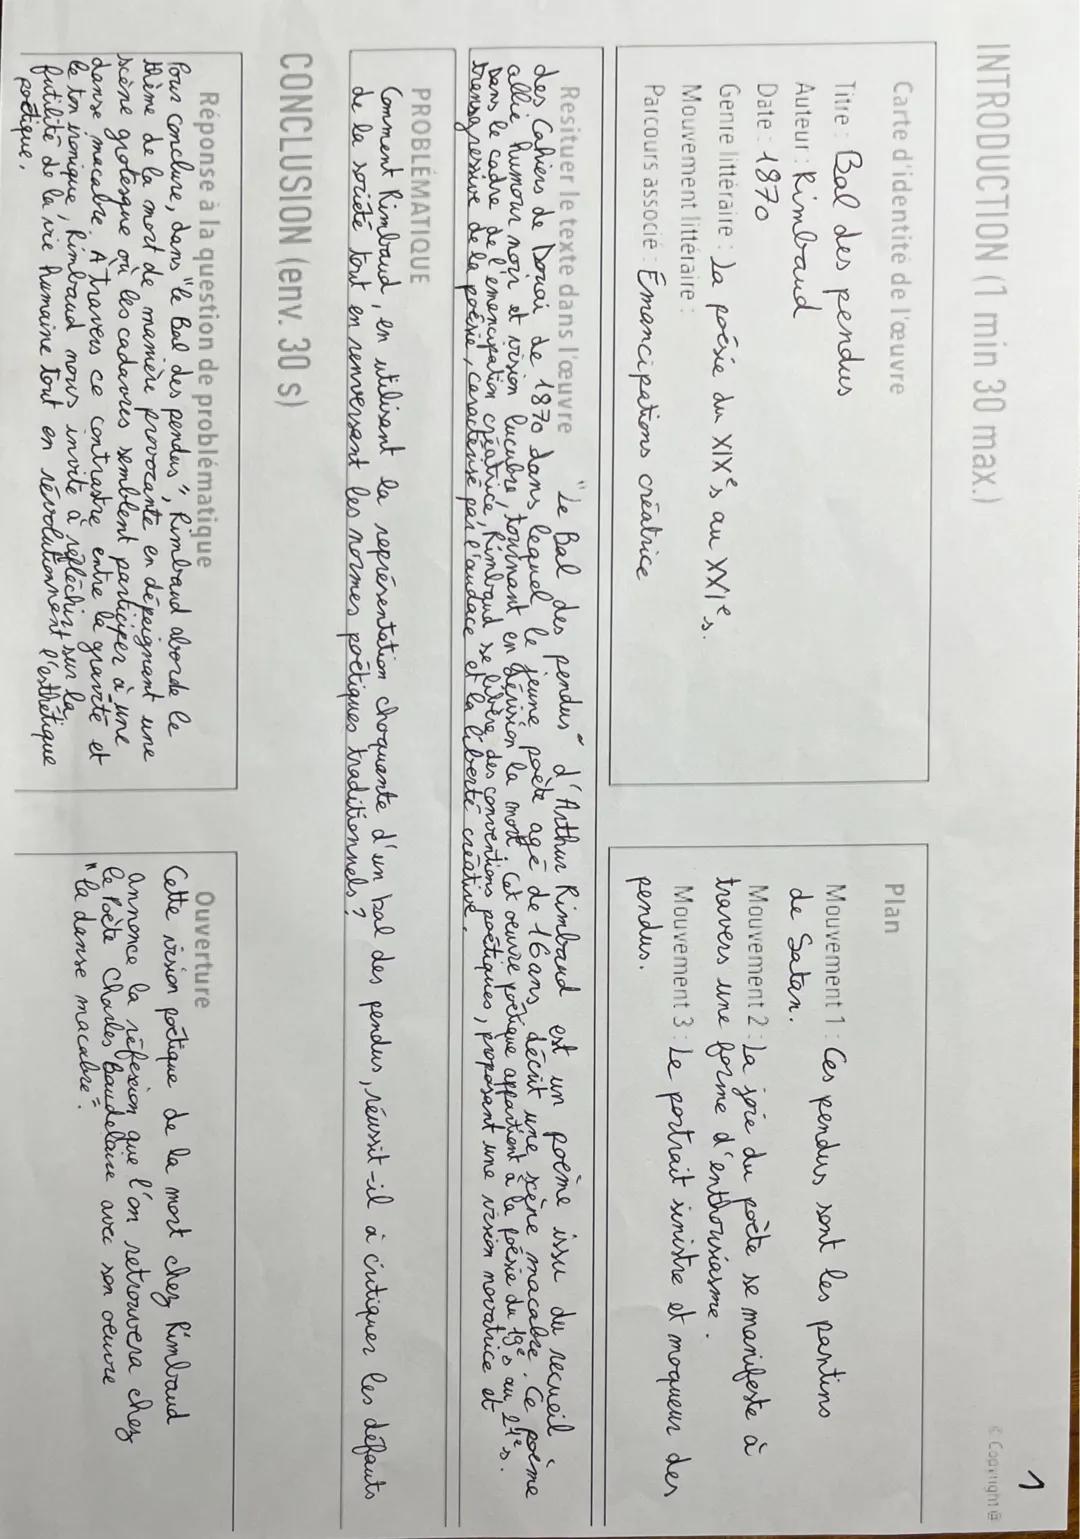 1
© Copyright
INTRODUCTION (1 min 30 max.)
Carte d'identité de l'œuvre
Titre : Bal des pendus
Auteur : Rimbaud
Date : 1870
Genre littéraire : La poésie du XIXe s au XXIe s.
Mouvement littéraire :
Parcours associé : Émancipations créatrice
Plan
Mouvement 1 : Ces pendus sont les pantins
de Satan.
Mouvement 2 : La joie du poète se manifeste à
travers une forme d'enthousiasme.
Mouvement 3 : Le portrait sinistre et moqueur des
pendus.
Resituer le texte dans l'œuvre "Le Bal des pendus" d'Arthur Rimbaud est un poème issu du recueil
des Cahiers de Douai de 1870 dans lequel le jeune poète agé de 16 ans, décrit une scène macabre. Ce poème
allie humour noir et vision lucubre, tournant en dérision la mort. Cet oeuvre poétique appartient à la poésie du 19e s au 21e s.
Dans le cadre de l'émancipation créatrice, Rimbaud se libère des conventions poétiques, proposant une vision novatrice et
transgressive de la poésie, caractérisé par l'audace et la liberté créative.
PROBLÉMATIQUE
Comment Rimbaud, en utilisant la représentation choquante d'un bal des pendus, réussit-il à critiquer les défauts
de la société tout en renversant les normes poétiques traditionnels ?
CONCLUSION (env. 30 s)
Réponse à la question de problématique
Pour conclure, dans "le Bal des pendus", Rimbaud aborde le
thème de la mort de manière provocante en dépeignant une
scène grotesque où les cadavres semblent participer à une
danse macabre. A travers ce contraste entre la gravité et
le ton ironique, Rimbaud nous invite à réfléchir sur la
futilité de la vie humaine tout en révolutionnent l'esthétique
poétique.
Ouverture
Cette vision poétique de la mort chez Rimbaud
annonce la réflexion que l'on retrouvera chez
le Poète Charles Baudelaire avec son oeuvre
"la danse macabre".